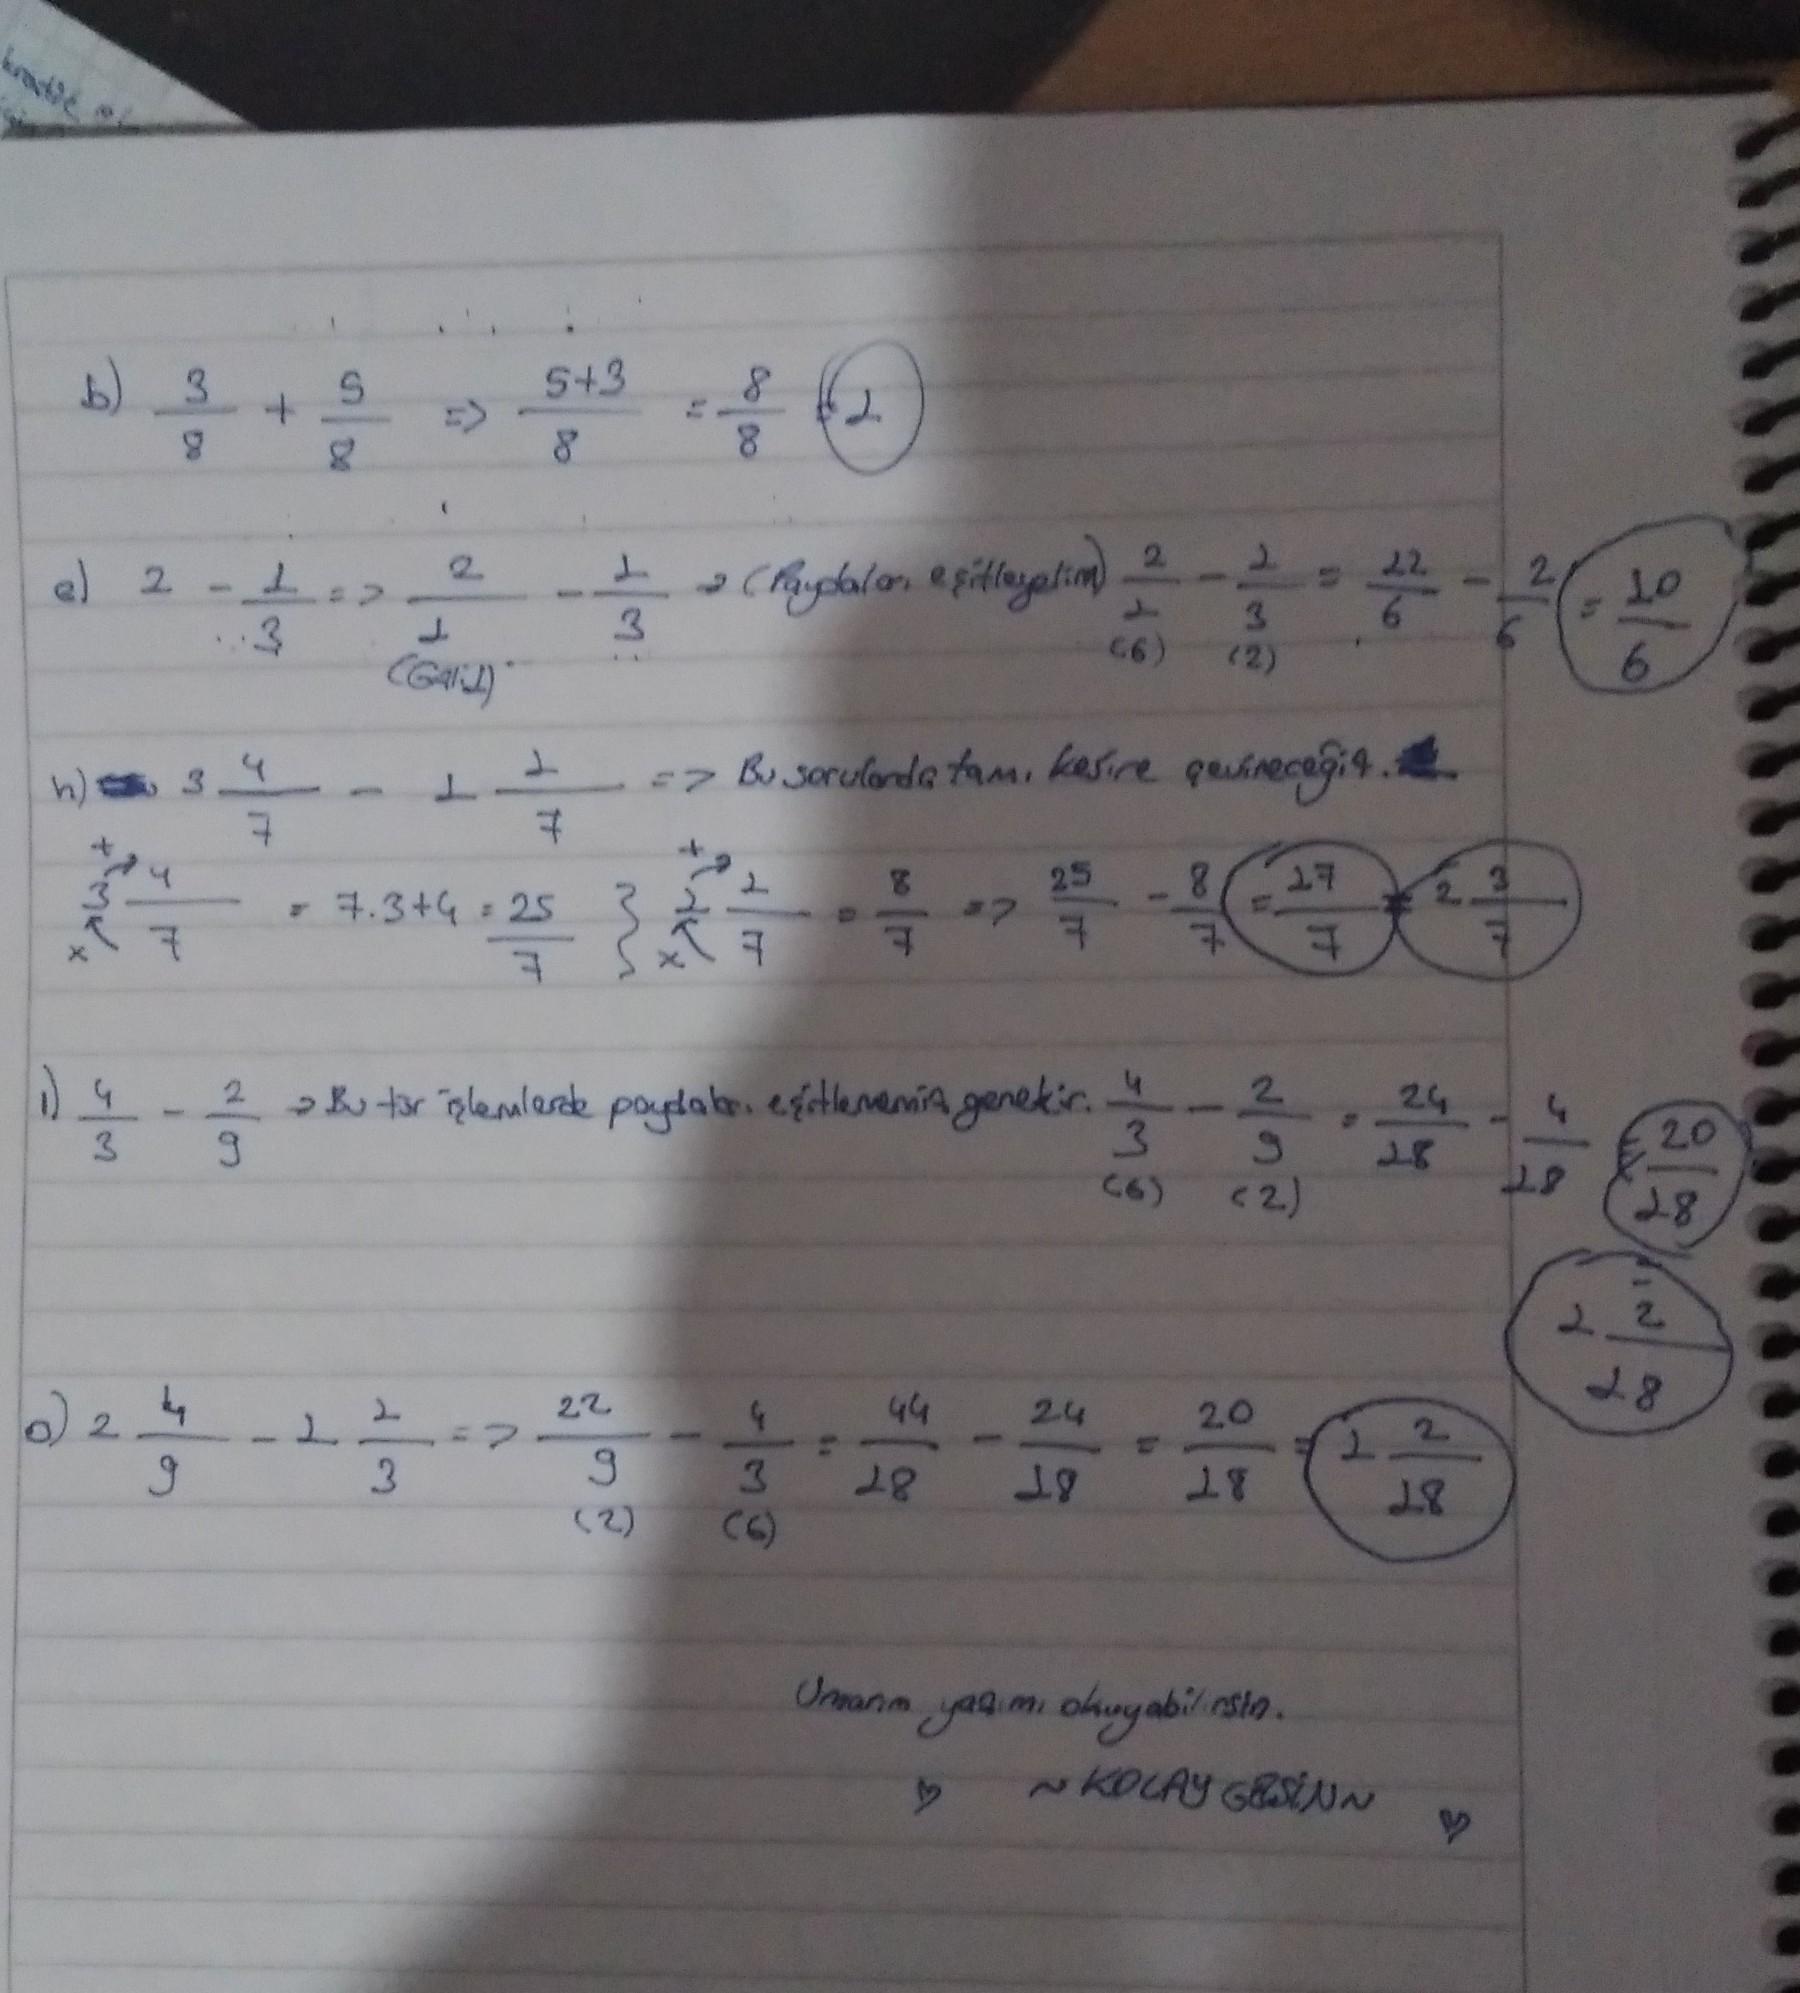 b) 3/8 + 5/8 => 5+3/8 = 8/8 = 1
e) 2 - 1/3 => 2/1 - 1/3 → (Paydaları eşitleyelim) 2/1 - 1/3 = 12/6 - 2/6 = 10/6
(Gizli) (6) (2)
h) 3 4/7 - 1 1/7 => Bu sorularda tamı kesire çevireceğiz.
3 4/7 = 7.3+4 = 25/7 } 1 1/7 = 8/7 => 25/7 - 8/7 = 17/7 = 2 3/7
+ x + x
ı) 4/3 - 2/9 → Bu tür işlemlerde paydaları eşitlememiz gerekir. 4/3 - 2/9 = 24/18 - 4/18 = 20/18
(6) (2)
= 1 2/18
o) 2 4/9 - 1 1/3 => 22/9 - 4/3 = 44/18 - 24/18 = 20/18 = 1 2/18
(2) (6)
Umarım yazımı okuyabilirsin.
♡ ~KOLAY GELSİN~ ♡